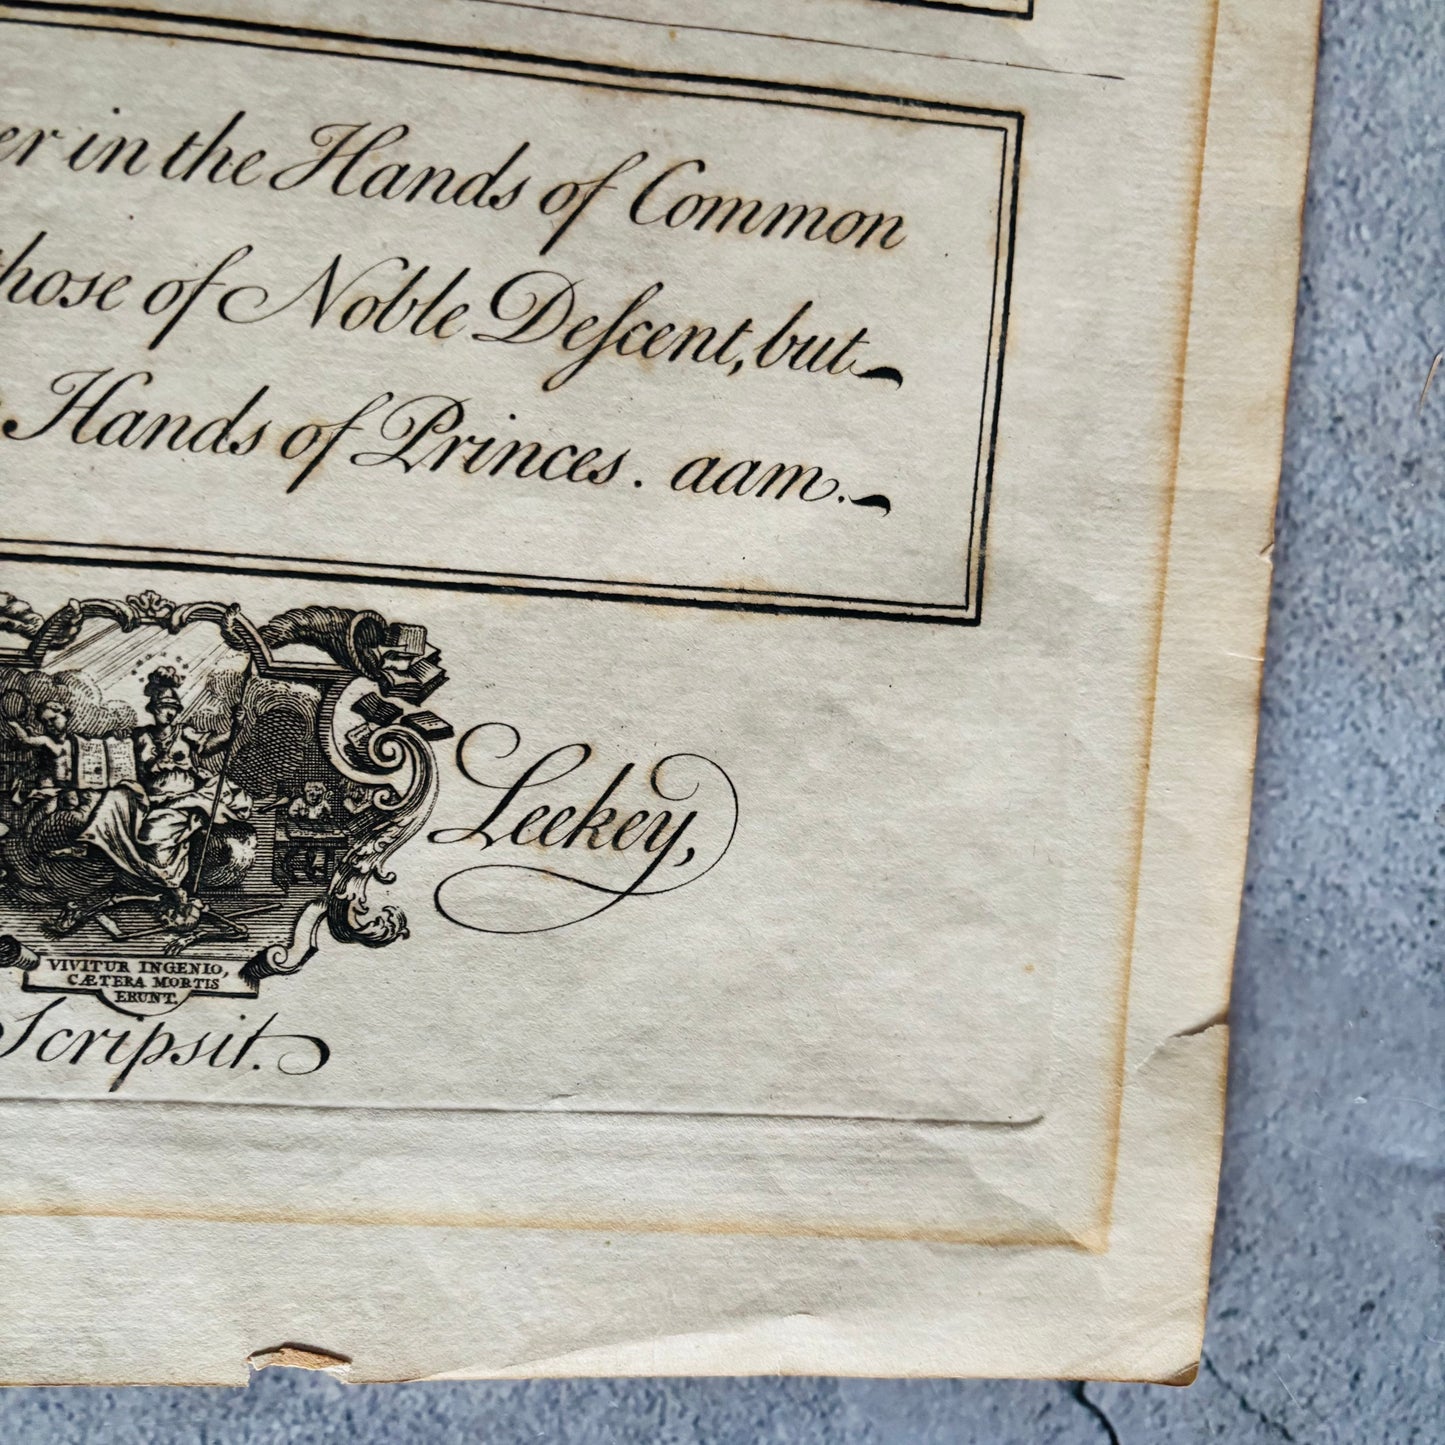 in the Hands of Common
of Noble Deſcent, but
Hands of Princes. aam.
Leekey,
VIVITUR INGENIO,
CÆTERA MORTIS
ERUNT.
Scripsit.